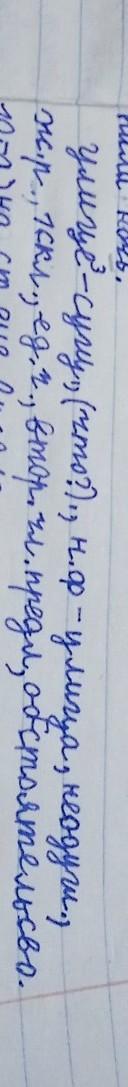 ночь.
улице³ - сущ., (что?)., н.ф - улица, неодуш.,
ж.р., 1скл., ед.ч., втор. чл. предл, обстоятельсво.